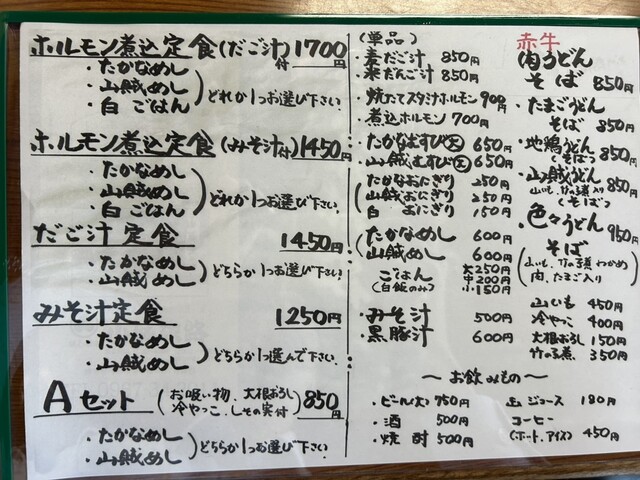 ホルモン煮込定食(だご汁付)1700円
・たかなめし
・山賊めし
・白ごはん
どれか1つお選び下さい。
ホルモン煮込定食(みそ汁付)1450円
・たかなめし
・山賊めし
・白ごはん
どれか1つお選び下さい。
だご汁定食 1450円
・たかなめし
・山賊めし
どちらか1つお選び下さい。
みそ汁定食 1250円
・たかなめし
・山賊めし
どちらか1つ選んで下さい。
Aセット(お吸い物、大根おろし 冷やっこ、しその実付)850円
・たかなめし
・山賊めし
どちらか1つお選び下さい。
(単品)
・麦だご汁 850円
・米だんご汁 850円
・焼たてスタミナホルモン 900円
・煮込ホルモン 700円
・たかなむすび大 650円
・山賊むすび大 650円
たかなおにぎり 250円
山賊おにぎり 250円
白おにぎり 150円
たかなめし 600円
山賊めし 600円
ごはん(白飯のみ) 大250円
中200円
小150円
・みそ汁 500円
・黒豚汁 600円
赤牛
・肉うどん
そば 850円
・たまごうどん
そば 850円
・地鶏うどん 850円
(そばつ
・山賊うどん 850円
山いも、竹の子煮入り
(そばつ
・色々うどん 950円
そば
(山いも、竹の子煮、わかめ
肉、たまご入り)
山いも 450円
冷やっこ 400円
大根おろし 150円
竹の子煮 350円
〜お飲みもの〜
・ビール(大) 750円
・酒 500円
・焼酎 500円
缶ジュース 180円
コーヒー
(ホート、アイス) 450円